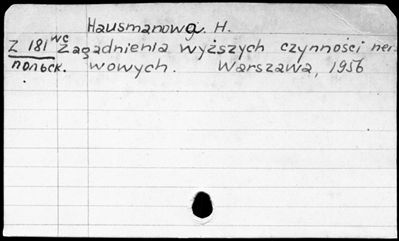 Hausmanowa. H.
Z 181 wc Zagadnienia wyższych czynności ner-
польск. wowych. Warszawa, 1956